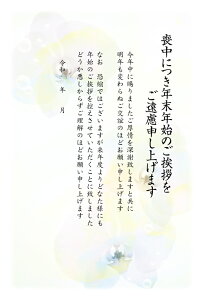 喪中につき年末年始のご挨拶を
ご遠慮申し上げます
今年中に賜りましたご厚情を深謝致しますと共に
明年も変わらぬご交誼のほどお願い申し上げます
なお 恐縮ではございますが来年度よりどなた様にも
年始のご挨拶を控えさせていただくことに致しました
どうか悪しからずご理解のほどお願い申し上げます
令和 年 月